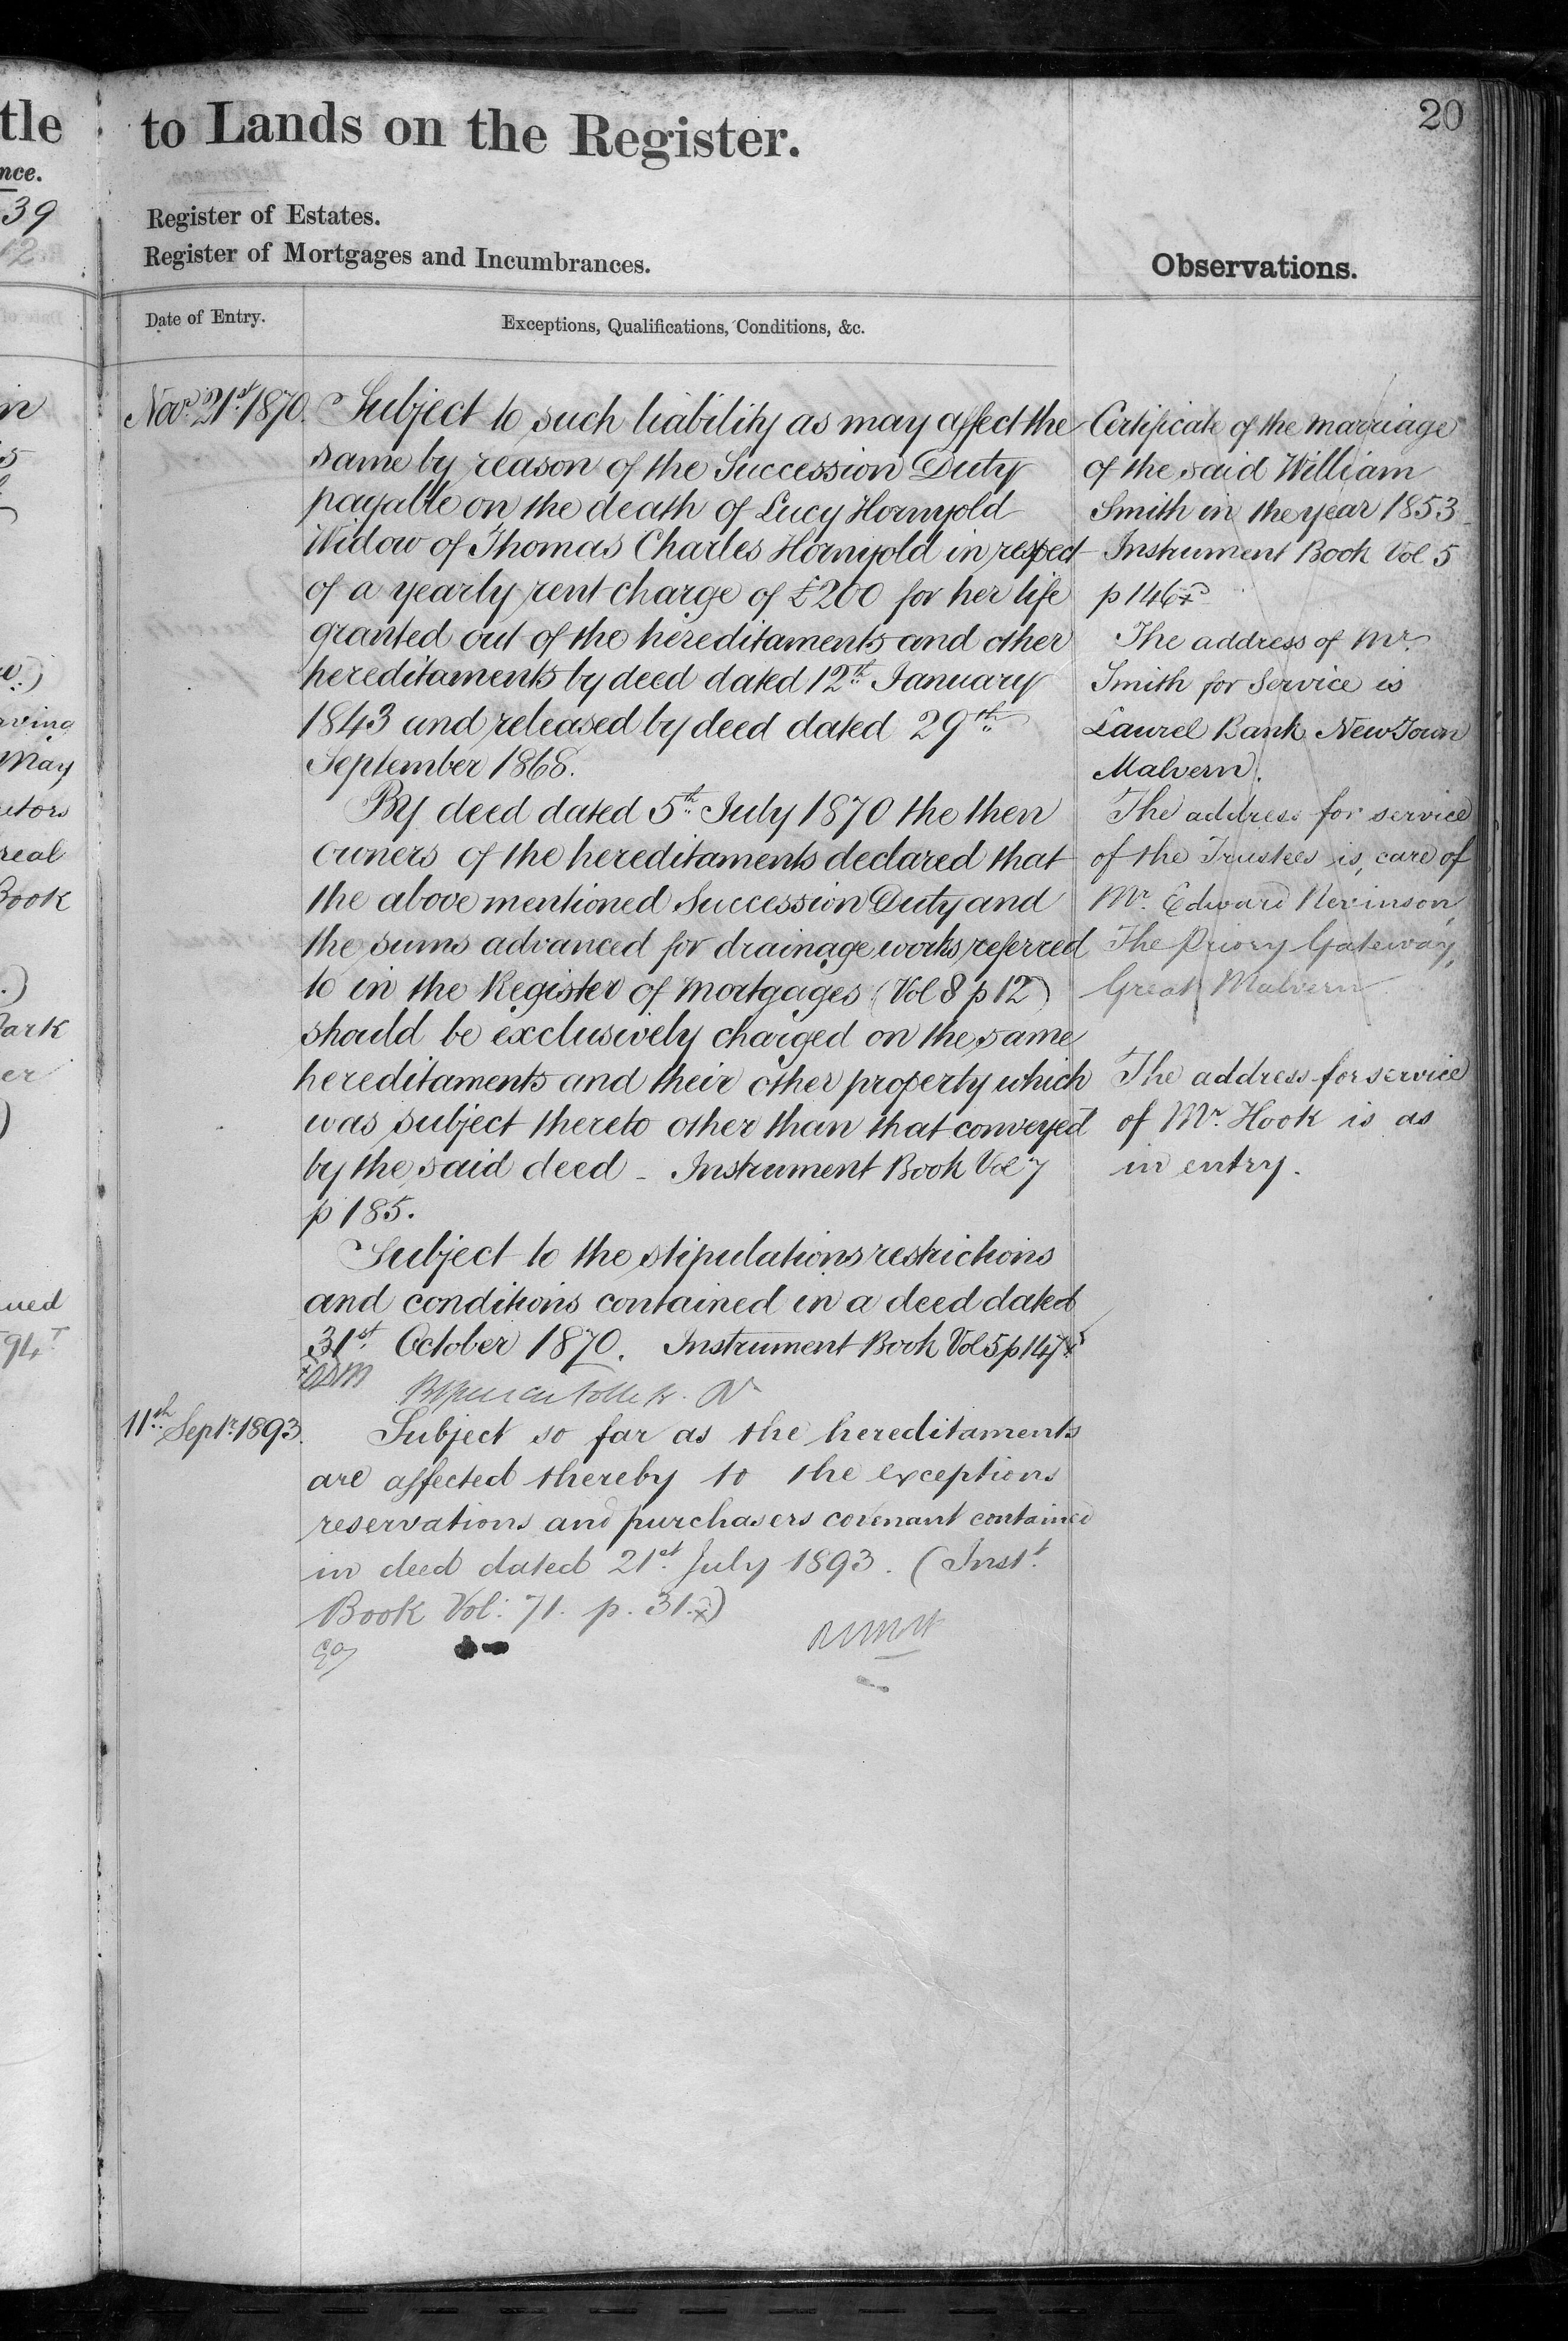 tle
nce.
39
12
in
5
w.)
aving
May
utors
real
Book
.)
Park
er
)
ued
94
to Lands on the Register.
20
Register of Estates.
Register of Mortgages and Incumbrances.
Observations.
Date of Entry.
Exceptions, Qualifications, Conditions, &c.
Novr. 21st. 1870.
Subject to such liability as may affect the
same by reason of the Succession Duty
payable on the death of Lucy Hornyold
Widow of Thomas Charles Hornyold in respect
of a yearly rent charge of £200 for her life
granted out of the hereditaments and other
hereditaments by deed dated 12th January
1843 and released by deed dated 29th
September 1868.
By deed dated 5th July 1870 the then
owners of the hereditaments declared that
the above mentioned Succession Duty and
the sums advanced for drainage works referred
to in the Register of Mortgages (Vol 8 p 12)
should be exclusively charged on the same
hereditaments and their other property which
was subject thereto other than that conveyed
by the said deed - Instrument Book Vol 7
p 185.
Subject to the stipulations restrictions
and conditions contained in a deed dated
31st October 1870. Instrument Book Vol 5 p 147
11th Septr. 1893.
Subject so far as the hereditaments
are affected thereby to the exceptions
reservations and purchasers covenant contained
in deed dated 21st July 1893. (Inst.
Book Vol: 71. p. 31.x)
Certificate of the marriage
of the said William
Smith in the year 1853
Instrument Book Vol 5
p 146
The address of Mr.
Smith for Service is
Laurel Bank New Town
Malvern.
The address for service
of the Trustees is, care of
Mr. Edward Nevinson,
The Priory Gateway,
Great Malvern
The address for service
of Mr. Hook is as
in entry.